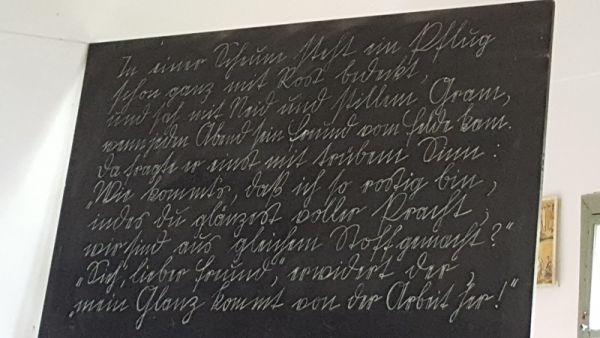 In einer Scheune steht ein Pflug
schon ganz mit Rost bedeckt,
und sah mit Neid und stillem Gram,
wenn jeden Abend sein Freund vom Felde kam.
Da fragte er einst mit trübem Sinn:
„Wie kommts, daß ich so rostig bin,
indes du glänzest voller Pracht,
wir sind aus gleichem Stoff gemacht?"
„Sieh, lieber Freund," erwidert der,
„mein Glanz kommt von der Arbeit her!"